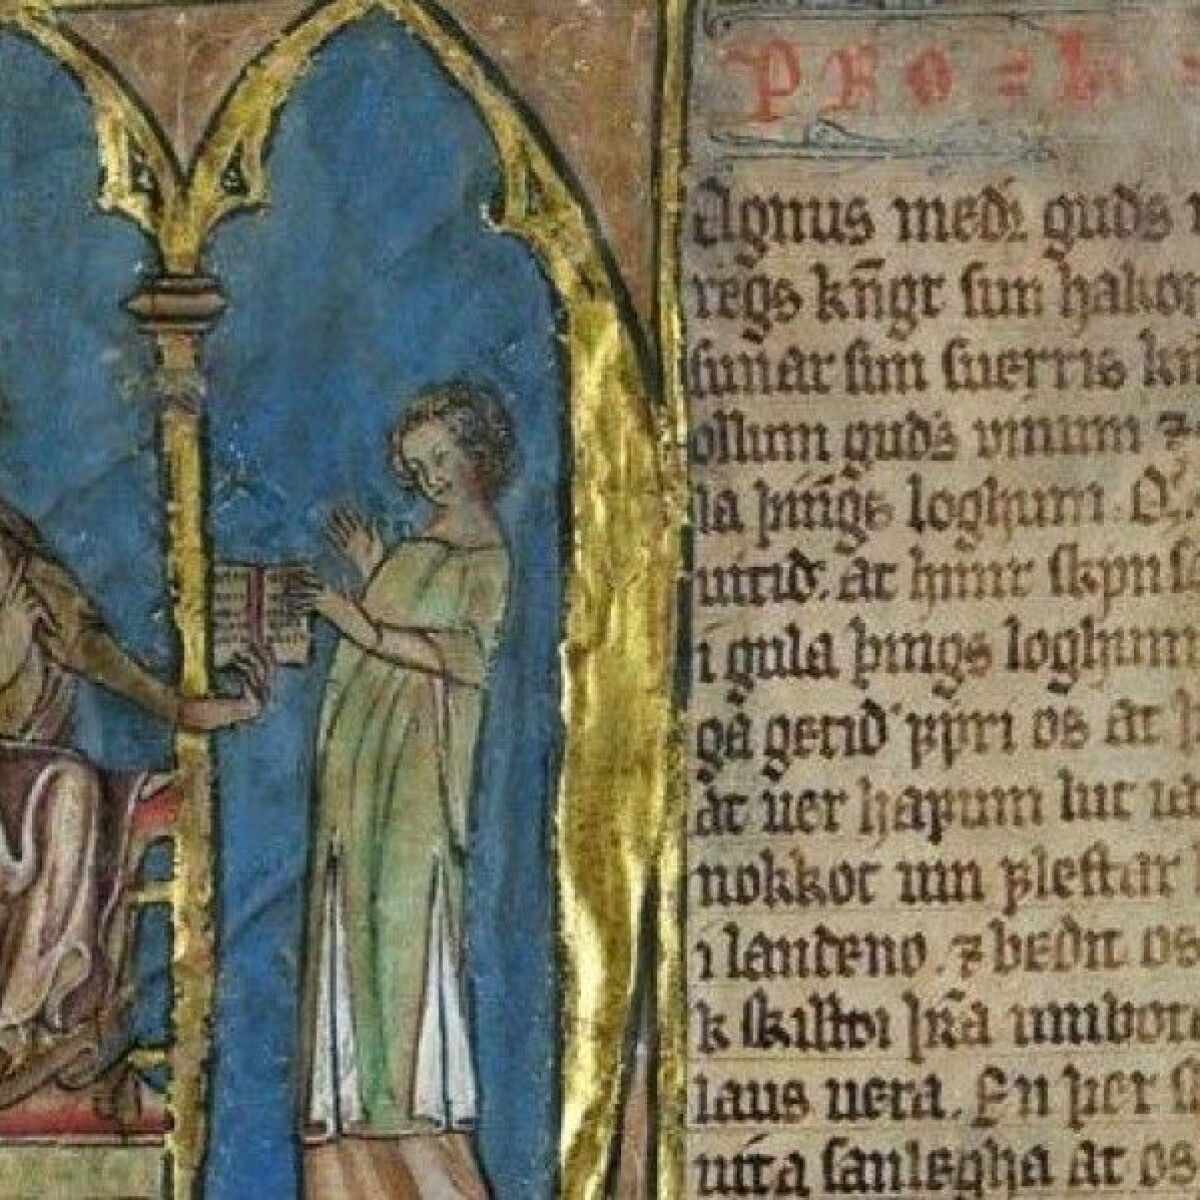 PRO=L
Magnus með guðs
regs kn̄gr sun hakon
sunar sun suerris kn
ollum guðs vinum ⁊
la þing̅s loghum.
uitið. at hinir skynsa
i gula þings loghum
ga getið ꝼyri os at
at uer haꝼum lut
nokkot um ꝼlestar
i landeno. ⁊ beðit os
k skilldi þr̄a umbot
laus uera. En þer s
uita sanlegha at os